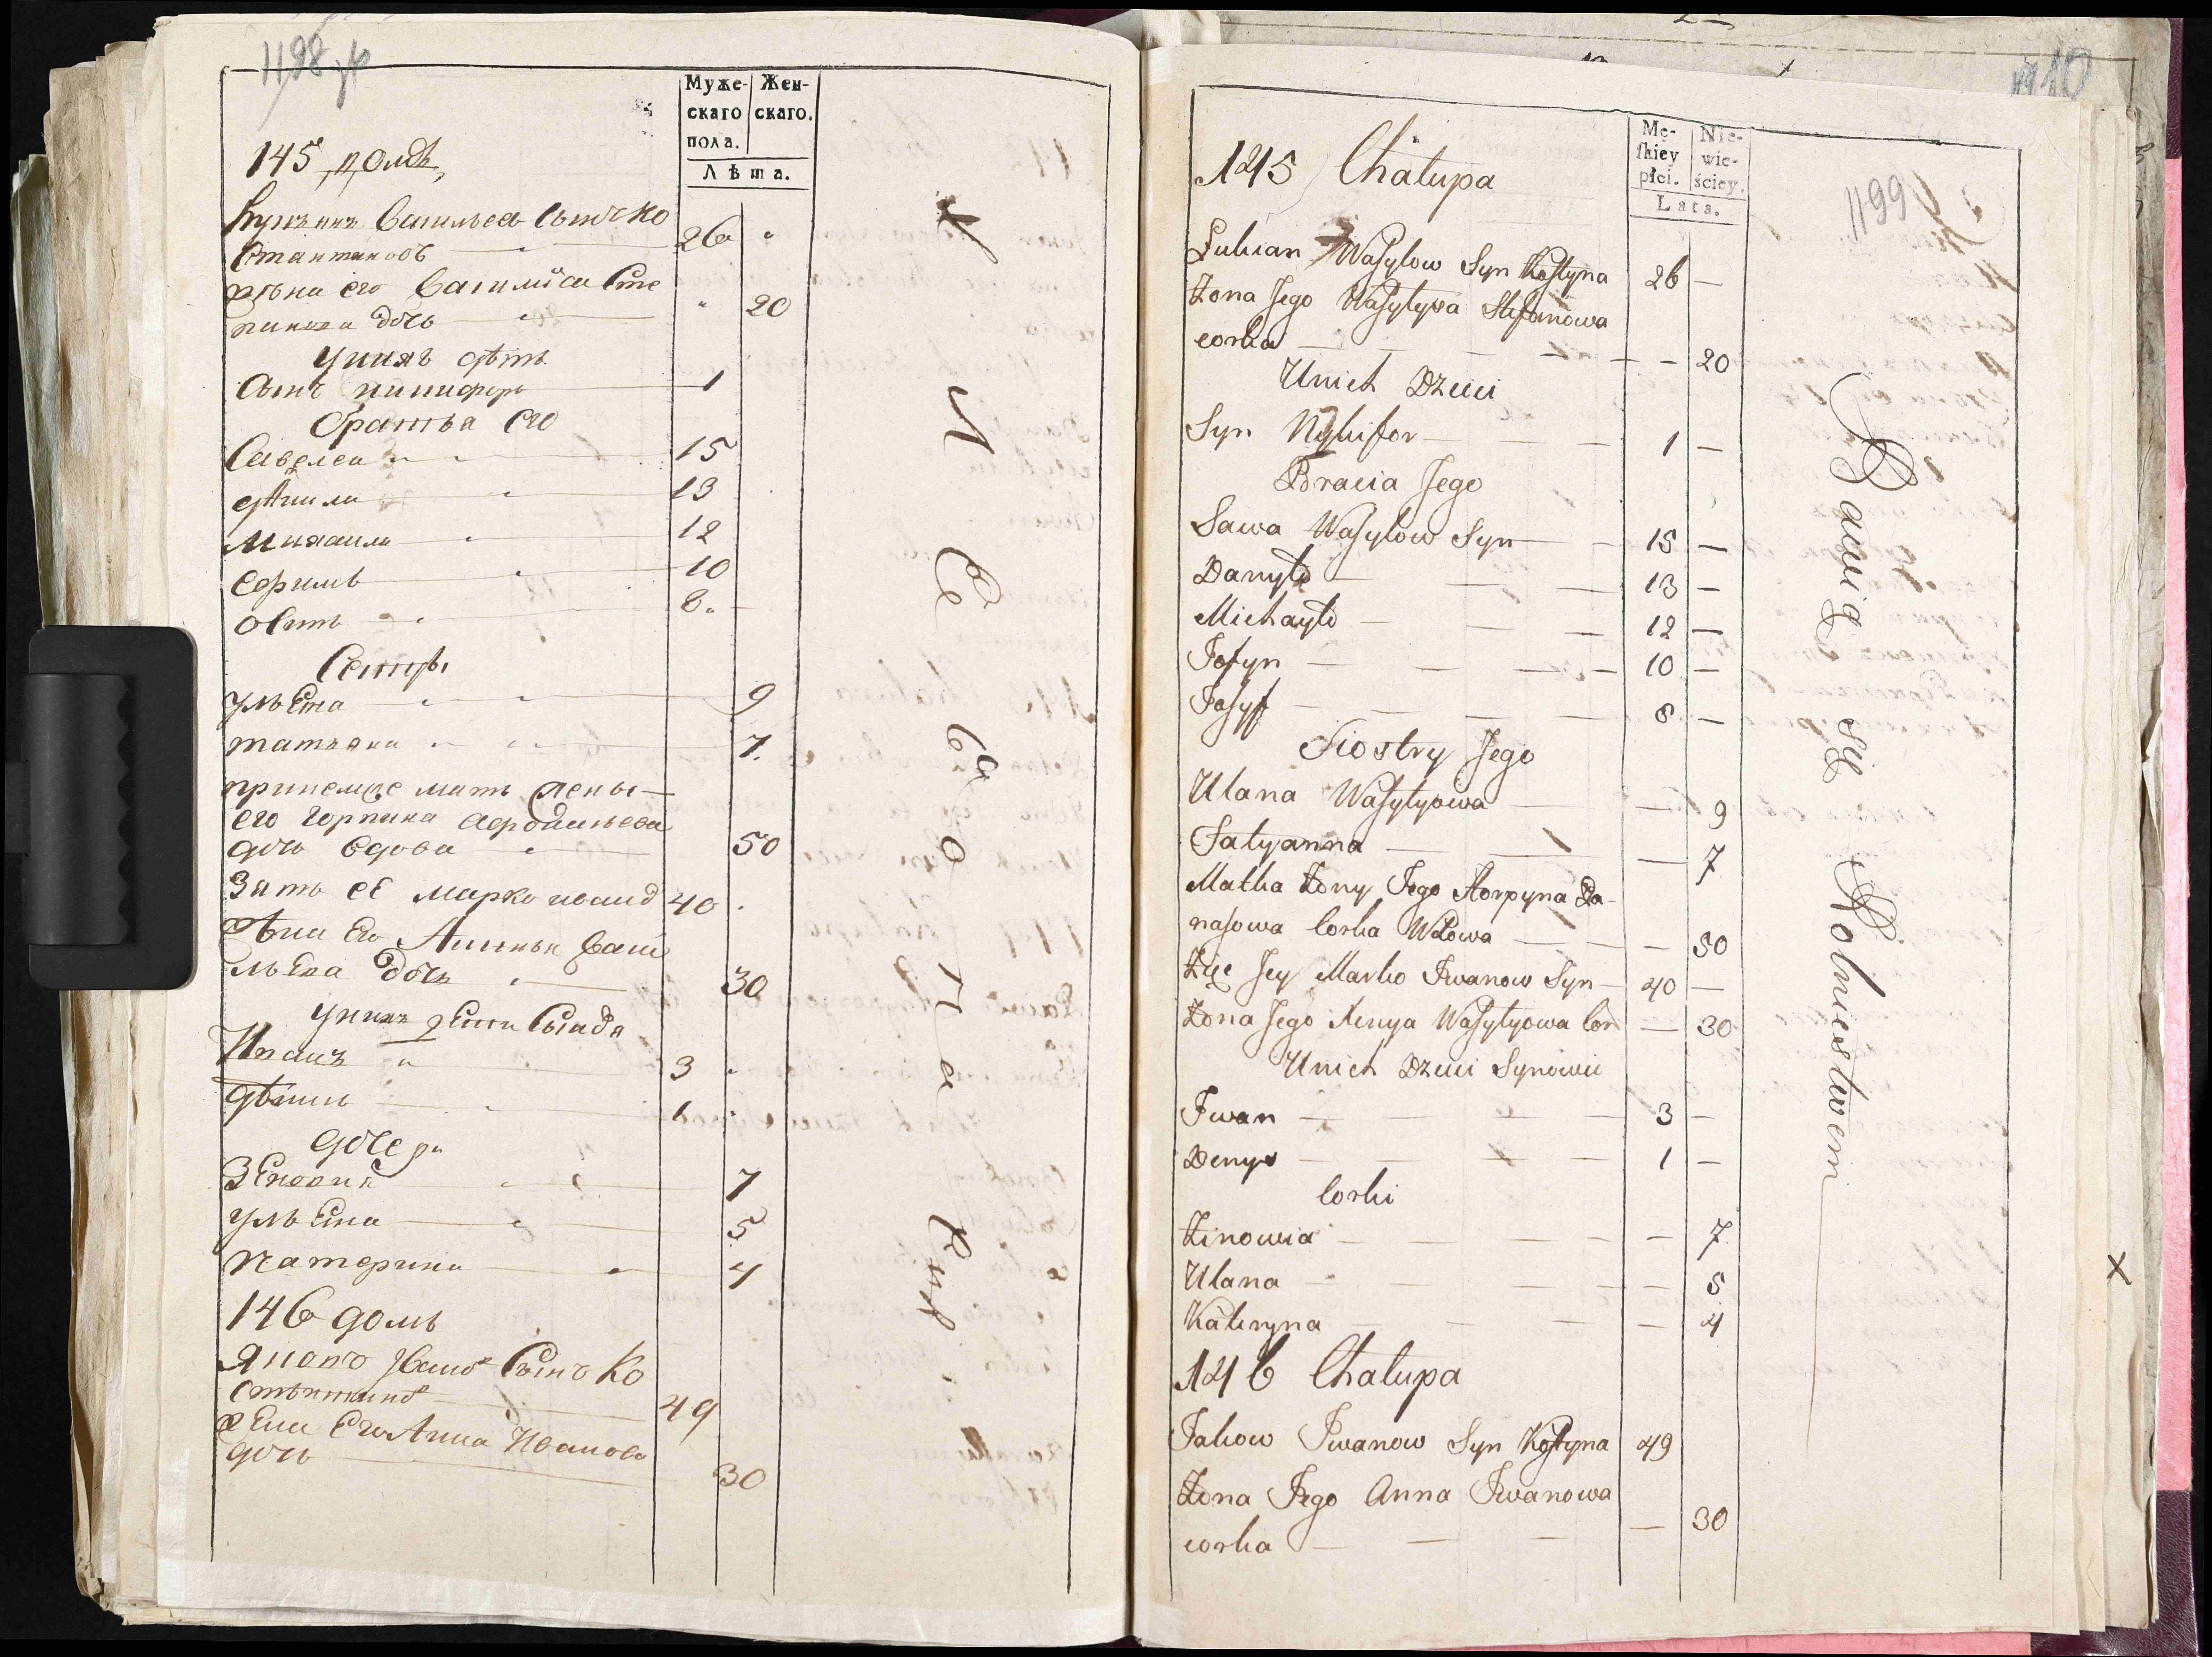 1198
Муже-
скаго
пола.
Жен-
скаго.
Лѣта.
145 домъ
Васильевъ Сынъ Ко
стантиновъ 26
Жена его Василиса Сте
панова дочь 20
Унихъ дѣти
Сынъ Никифоръ 1
братья его
Савелеи 15
Данила 13
Михаила 12
Ефимъ 10
Осипъ 8
Сестры
Ульяна 9
татьяна 7
мать жены
его горпина
дочь вдова 50
Зять ее Марко иванов 40
жена Его Аксинья Васи
льева дочь 30
Унихъ дети Сыновья
Иванъ 3
Денисъ 1
дочери
Зеновия 7
Ульяна 5
Катерина 4
146 домъ
Яковъ Ивановъ Сынъ Ко
стантинов 49
жена Его Анна Иванова
дочь 30
10
1199
Mę-
skiey
płci.
Nie-
wie-
ściey.
Lata.
145 Chałupa
Łukian Wasylow Syn Kostyna 26 —
Żona Jego Wasylysa Stefanowa
corka — 20
Unich Dzieci
Syn Nykifor 1 —
Bracia Jego
Sawa Wasylow Syn 15 —
Danyło 13 —
Michayło 12 —
Jofyn 10 —
Josyf 8 —
Siostry Jego
Ulana Wasylyowa — 9
Tatyanna — 7
Matka Żony Jego Horpyna Pa-
nasowa Corka Wdowa — 50
Zięć Jey Marko Iwanow Syn 40 —
Żona Jego Xenya Wasylyowa Cor — 30
Unich Dzieci Synowie
Iwan 3 —
Denys 1 —
Corki
Zinowia — 7
Ulana — 5
Kateryna — 4
146 Chałupa
Jakow Iwanow Syn Kostyna 49
Żona Jego Anna Iwanowa
corka — 30
Bawią się Rolnictwem
X